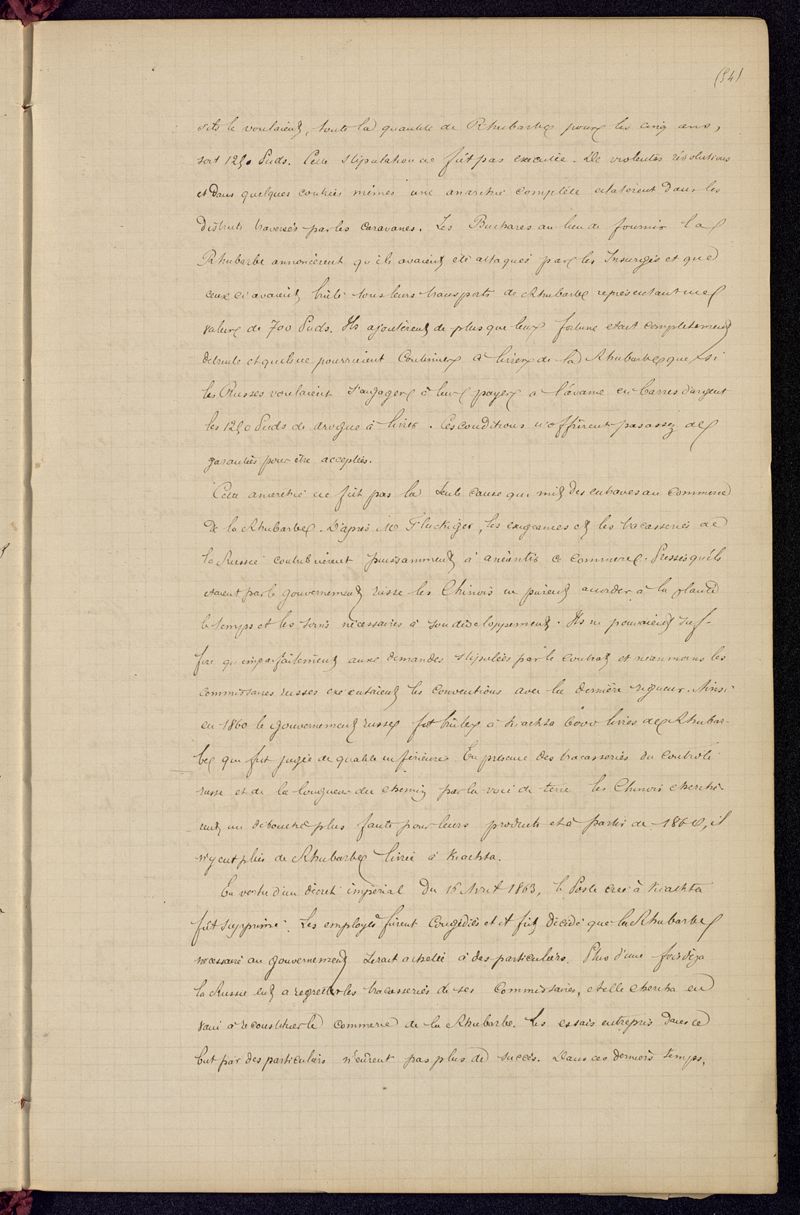 (54)
s'ils le voulaient, toute la quantité de Rhubarbe pour les cinq ans,
soit 1250 Puds. Cette stipulation ne fût pas executée. De violentes révolutions
et dans quelques contrées mêmes une anarchie complète eclatèrent dans les
districts traversés par les caravanes. Les Buchares au lieu de fournir la
Rhubarbe annoncèrent qu'ils avaient été attaqués par les Insurgés et que
ceux ci avaient brûlé tous leurs transports de Rhubarbe représentant une
valeur de 700 Puds. Ils ajoutèrent de plus que leur fortune etait completement
détruite et qu'ils ne pourraient continuer à livrer de la Rhubarbe que si
les Russes voulaient s'engager à leur payer à l'avance en barres d'argent
les 1250 Puds de drogue à livrer. Ces conditions n'offrirent pas assez de
garanties pour être acceptées.
Cette anarchie ne fût pas la seule cause qui mit des entraves au commerce
de la Rhubarbe. D'après Mr Fluckiger, les exigeances et les tracasseries de
la Russie contribuèrent puissamment à anéantir ce commerce. Pressés qu'ils
etaient par le gouvernement russe les Chinois ne purent accorder à la plante
le temps et les soins nécessaires à son développement. Ils ne pouvaient suf-
fire qu'imparfaitement aux demandes stipulées par le contrat et neanmoins les
commissaires russes executaient les conventions avec la dernière rigueur. Ainsi
en 1860 le gouvernement russe fit brûler à Kiachta 6000 livres de Rhubar-
be qui fut jugée de qualité inférieure. En présence des tracasseries du controle
russe et de la longueur du chemin par la voie de terre les Chinois cherchè-
rent un débouché plus facile pour leurs produits et à partir de 1860, il
n'y eut plus de Rhubarbe livrée à Kiachta.
En vertu d'un décret impérial du 16 Avril 1863, le Poste créé à Kiachta
fût supprimé. Les employés furent congédiés et il fût décidé que la Rhubarbe
nécessaire au gouvernement serait achetée à des particuliers. Plus d'une fois déjà
la Russie eut à regretter les tracasseries de ses commissaires, et elle chercha en
vain à reconstituer le commerce de la Rhubarbe. Les essais entrepris dans ce
but par des particuliers n'eûrent pas plus de succès. Dans ces derniers temps,